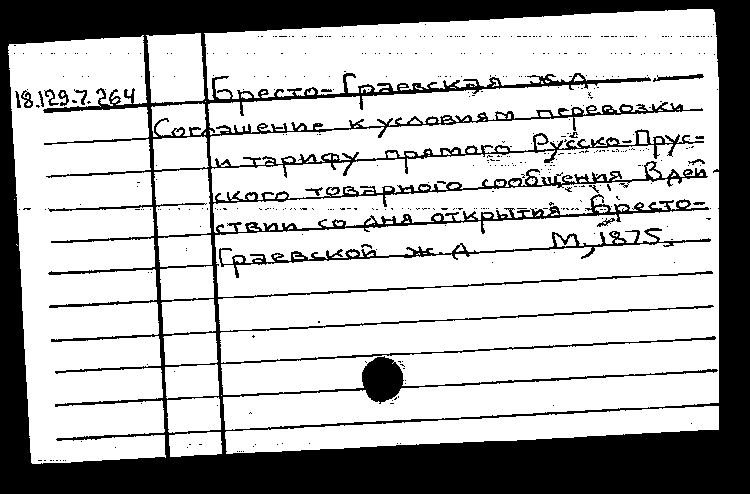 18.129.7.264 Бресто-Граевская ж.д.
Соглашение к условиям перевозки
и тарифу прямого Русско-Прус-
ского товарного сообщения. В дей-
ствии со дня открытия Бресто-
Граевской ж.д. М., 1875.